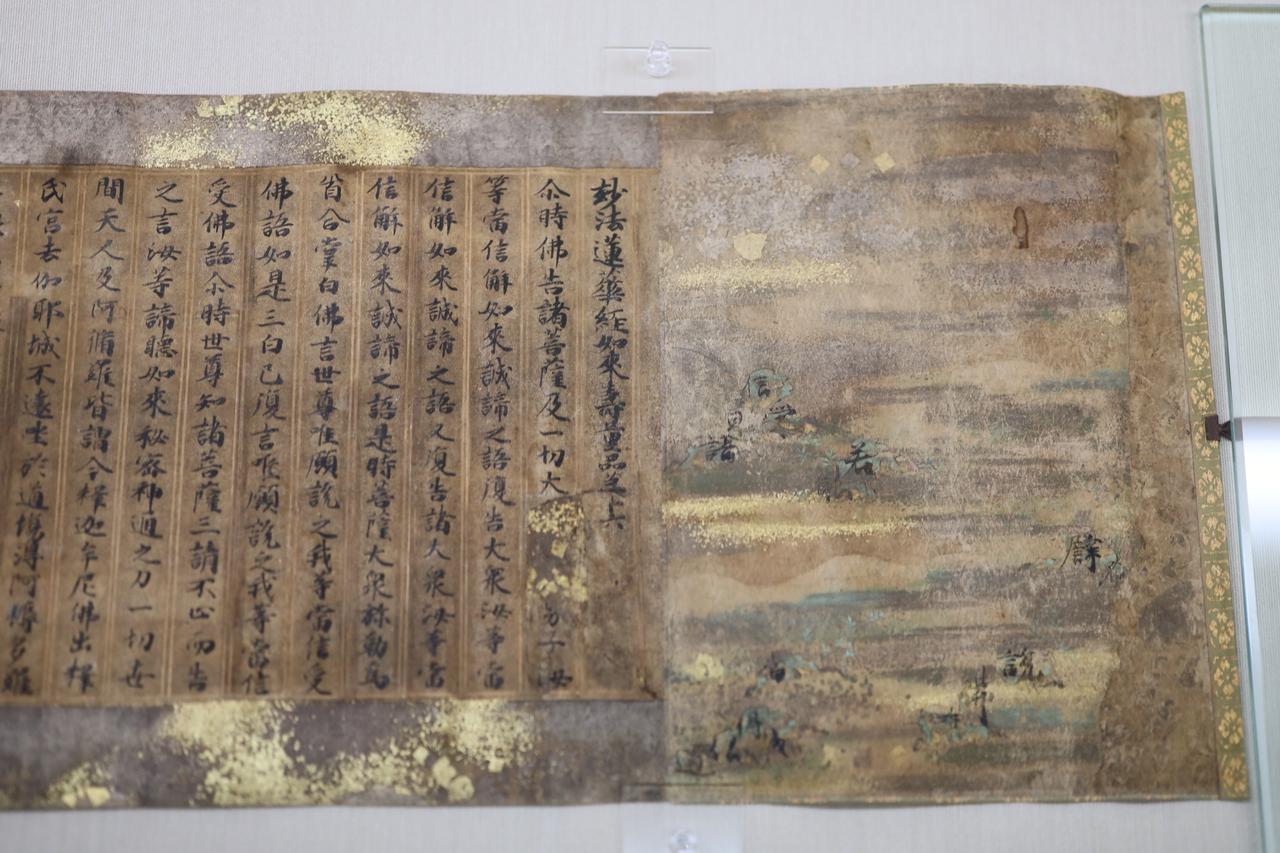 説
若
信
諸
妙法蓮華經如來壽量品第十六
尒時佛告諸菩薩及一切大 男子汝
等當信解如來誠諦之語復告大衆汝等當
信解如來誠諦之語又復告諸大衆汝等當
信解如來誠諦之語是時菩薩大衆弥勒為
首合掌白佛言世尊唯願説之我等當信受
佛語如是三白已復言唯願説之我等當信
受佛語尒時世尊知諸菩薩三請不止而告
之言汝等諦聽如來秘密神通之力一切世
間天人及阿脩羅皆謂今釋迦牟尼佛出釋
氏宮去伽耶城不遠坐於道場得阿耨多羅